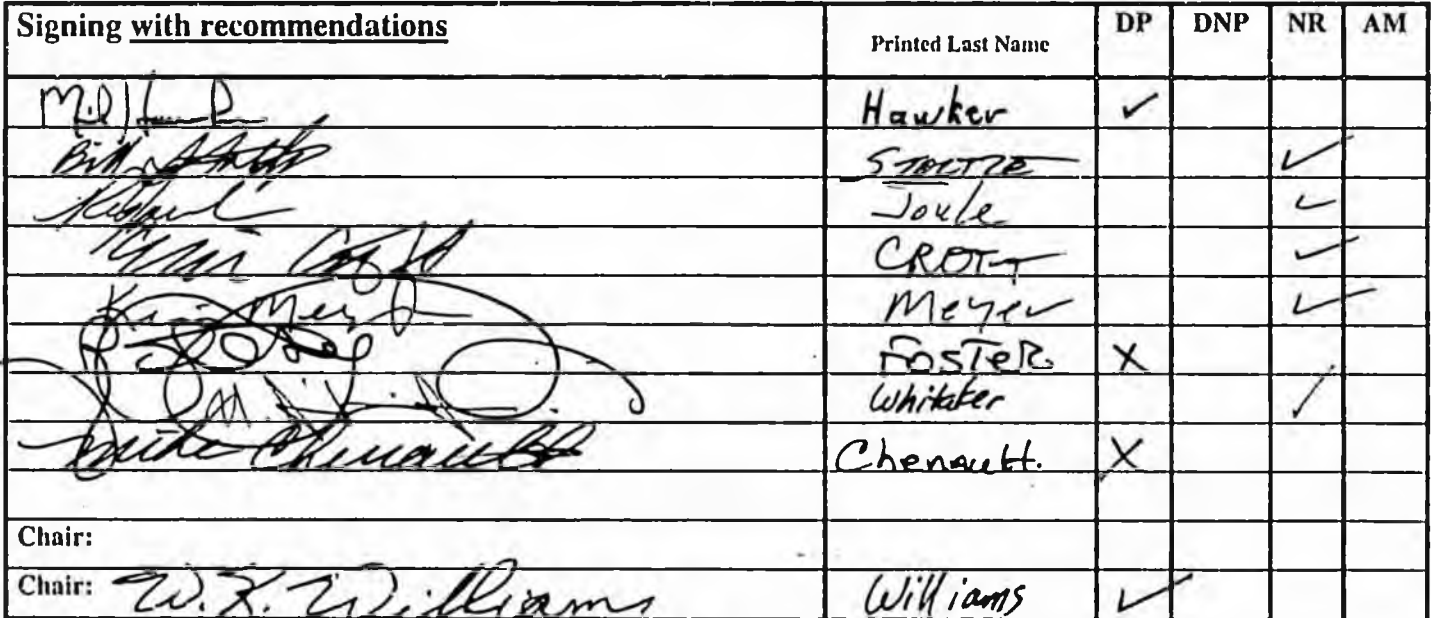 Signing with recommendations Printed Last Name DP DNP NR AM
Hawker ✓
Bill STOLTZE ✓
Joule ✓
CROFT ✓
Kevin Meyer Meyer ✓
FOSTER X
Whitaker ✓
Mike Chenault Chenault. X
Chair:
Chair: W.K. Williams Williams ✓